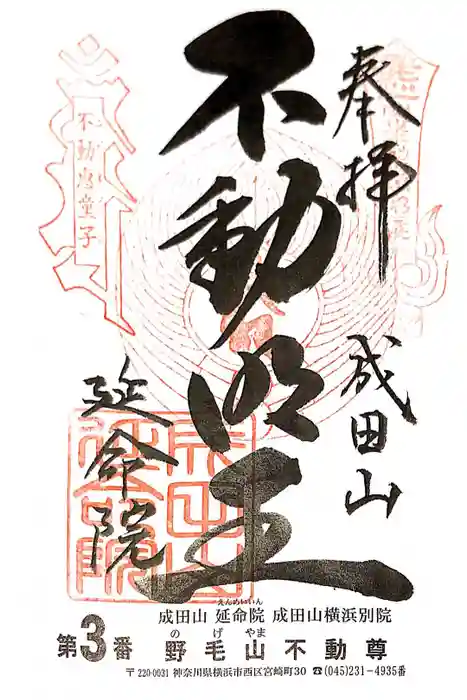 奉拝
成田山
不動明王
延命院
不動慧童子
えんめいいん
成田山 延命院 成田山横浜別院
の げ やま
第3番 野毛山不動尊
〒220-0031 神奈川県横浜市西区宮崎町30 ☎(045)231-4935番